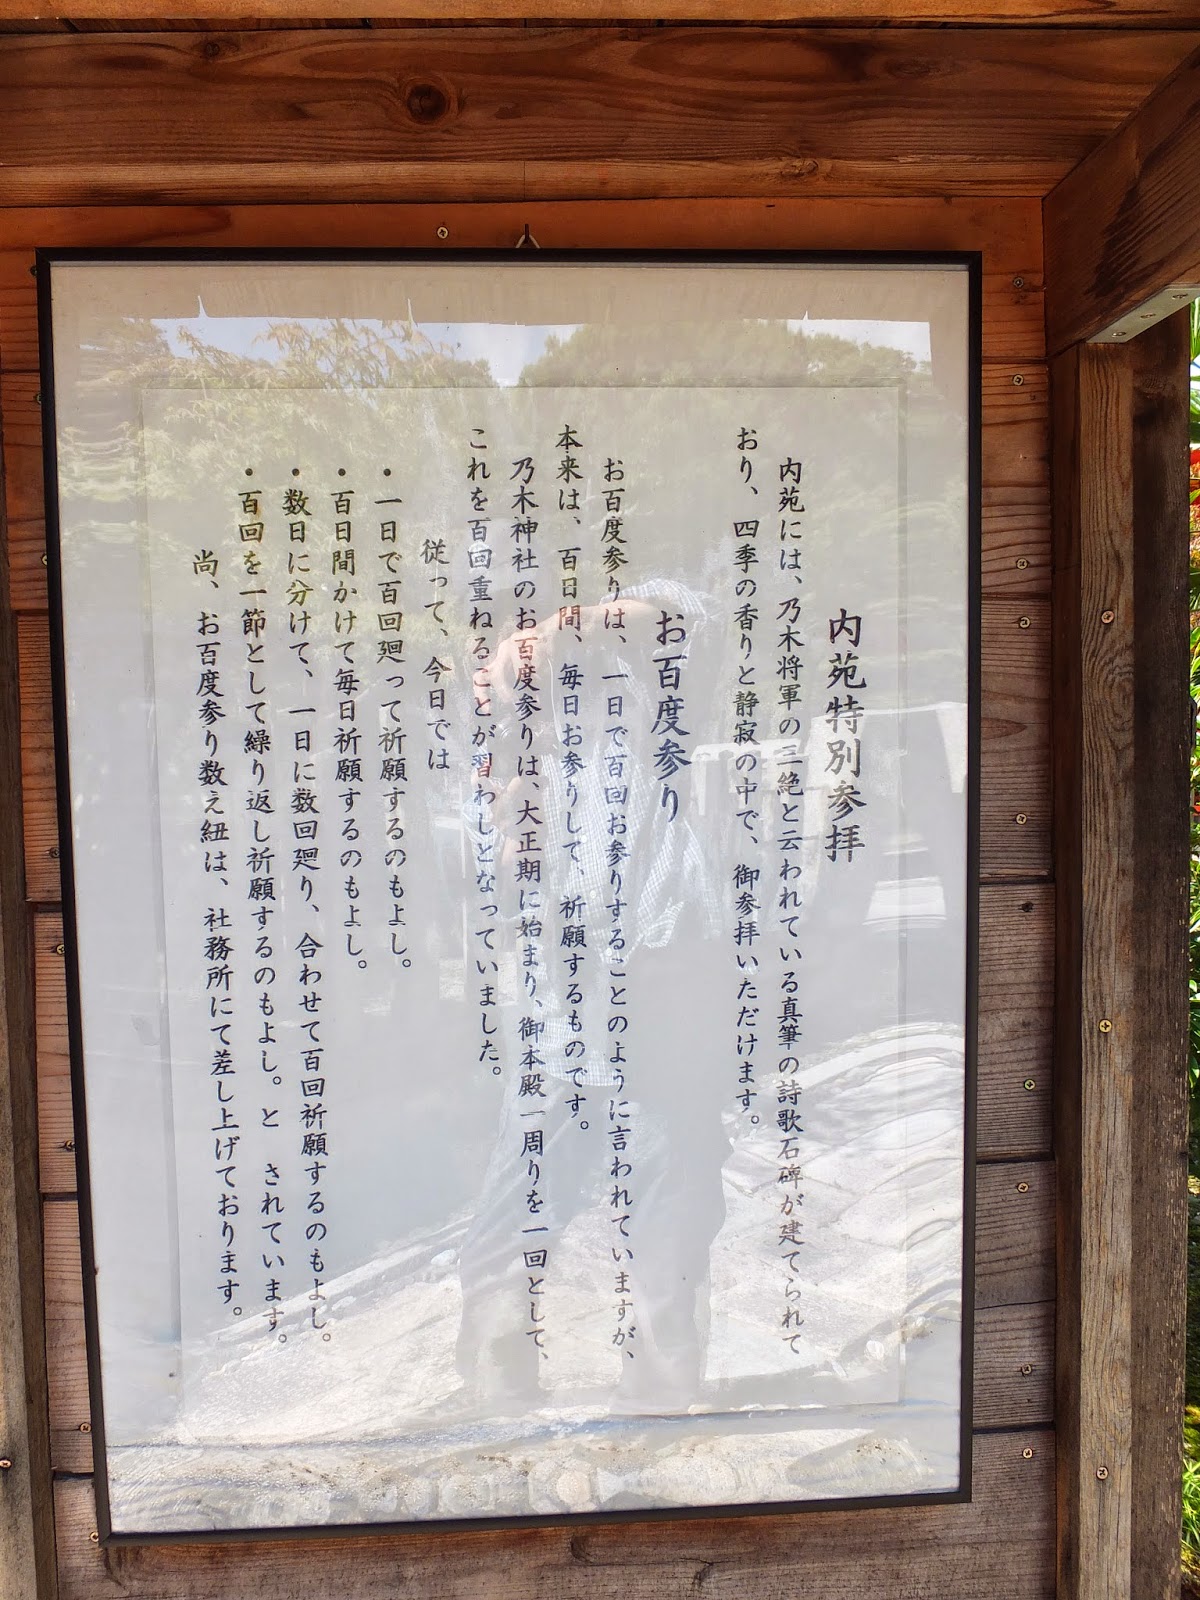 内苑特別参拝
内苑には、乃木将軍の三絶と云われている真筆の詩歌石碑が建てられて
おり、四季の香りと静寂の中で、御参拝いただけます。
お百度参り
お百度参りは、一日で百回お参りすることのように言われていますが、
本来は、百日間、毎日お参りして、祈願するものです。
乃木神社のお百度参りは、大正期に始まり、御本殿一周りを一回として、
これを百回重ねることが習わしとなっていました。
従って、今日では
・一日で百回廻って祈願するのもよし。
・百日間かけて毎日祈願するのもよし。
・数日に分けて、一日に数回廻り、合わせて百回祈願するのもよし。
・百回を一節として繰り返し祈願するのもよし。と されています。
尚、お百度参り数え紐は、社務所にて差し上げております。